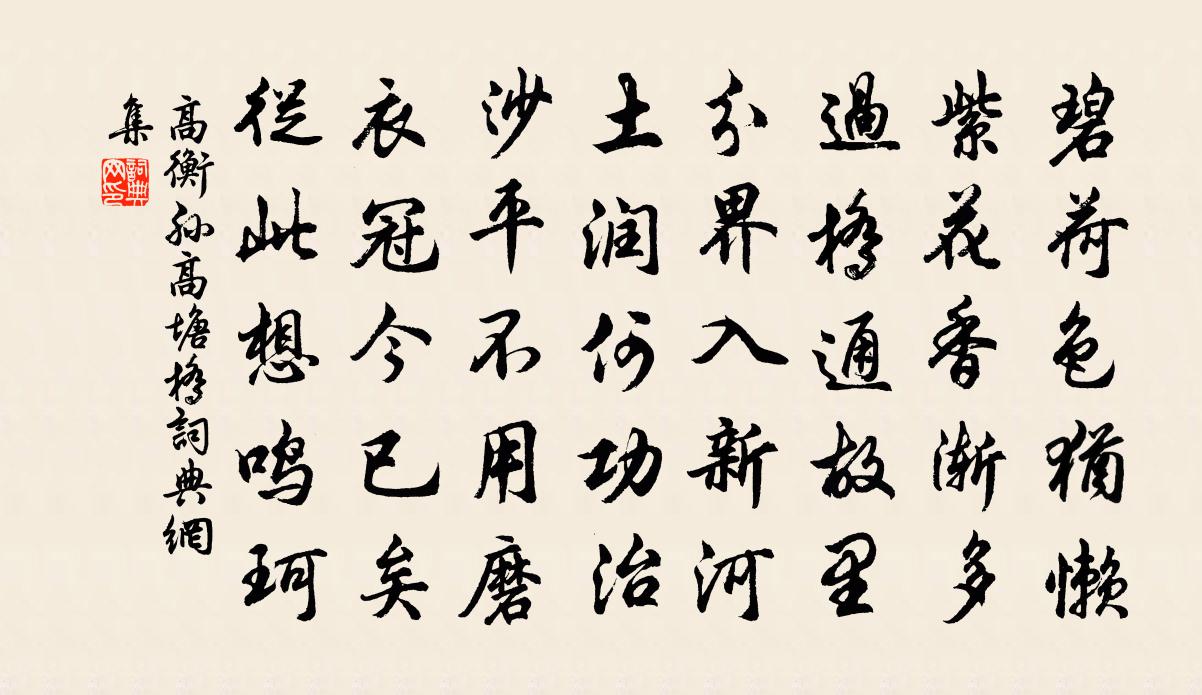 碧荷色猶懒
紫花香渐多
過橋通故里
分界入新河
土润何功治
沙平不用磨
衣冠今已矣
從此想鸣珂
高衡孙高塘橋詞典網
集
詞典網印